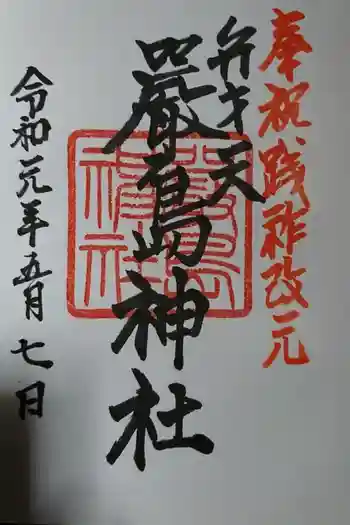 奉祝践祚改元
弁才天
嚴島神社
嚴島神社
令和元年五月七日